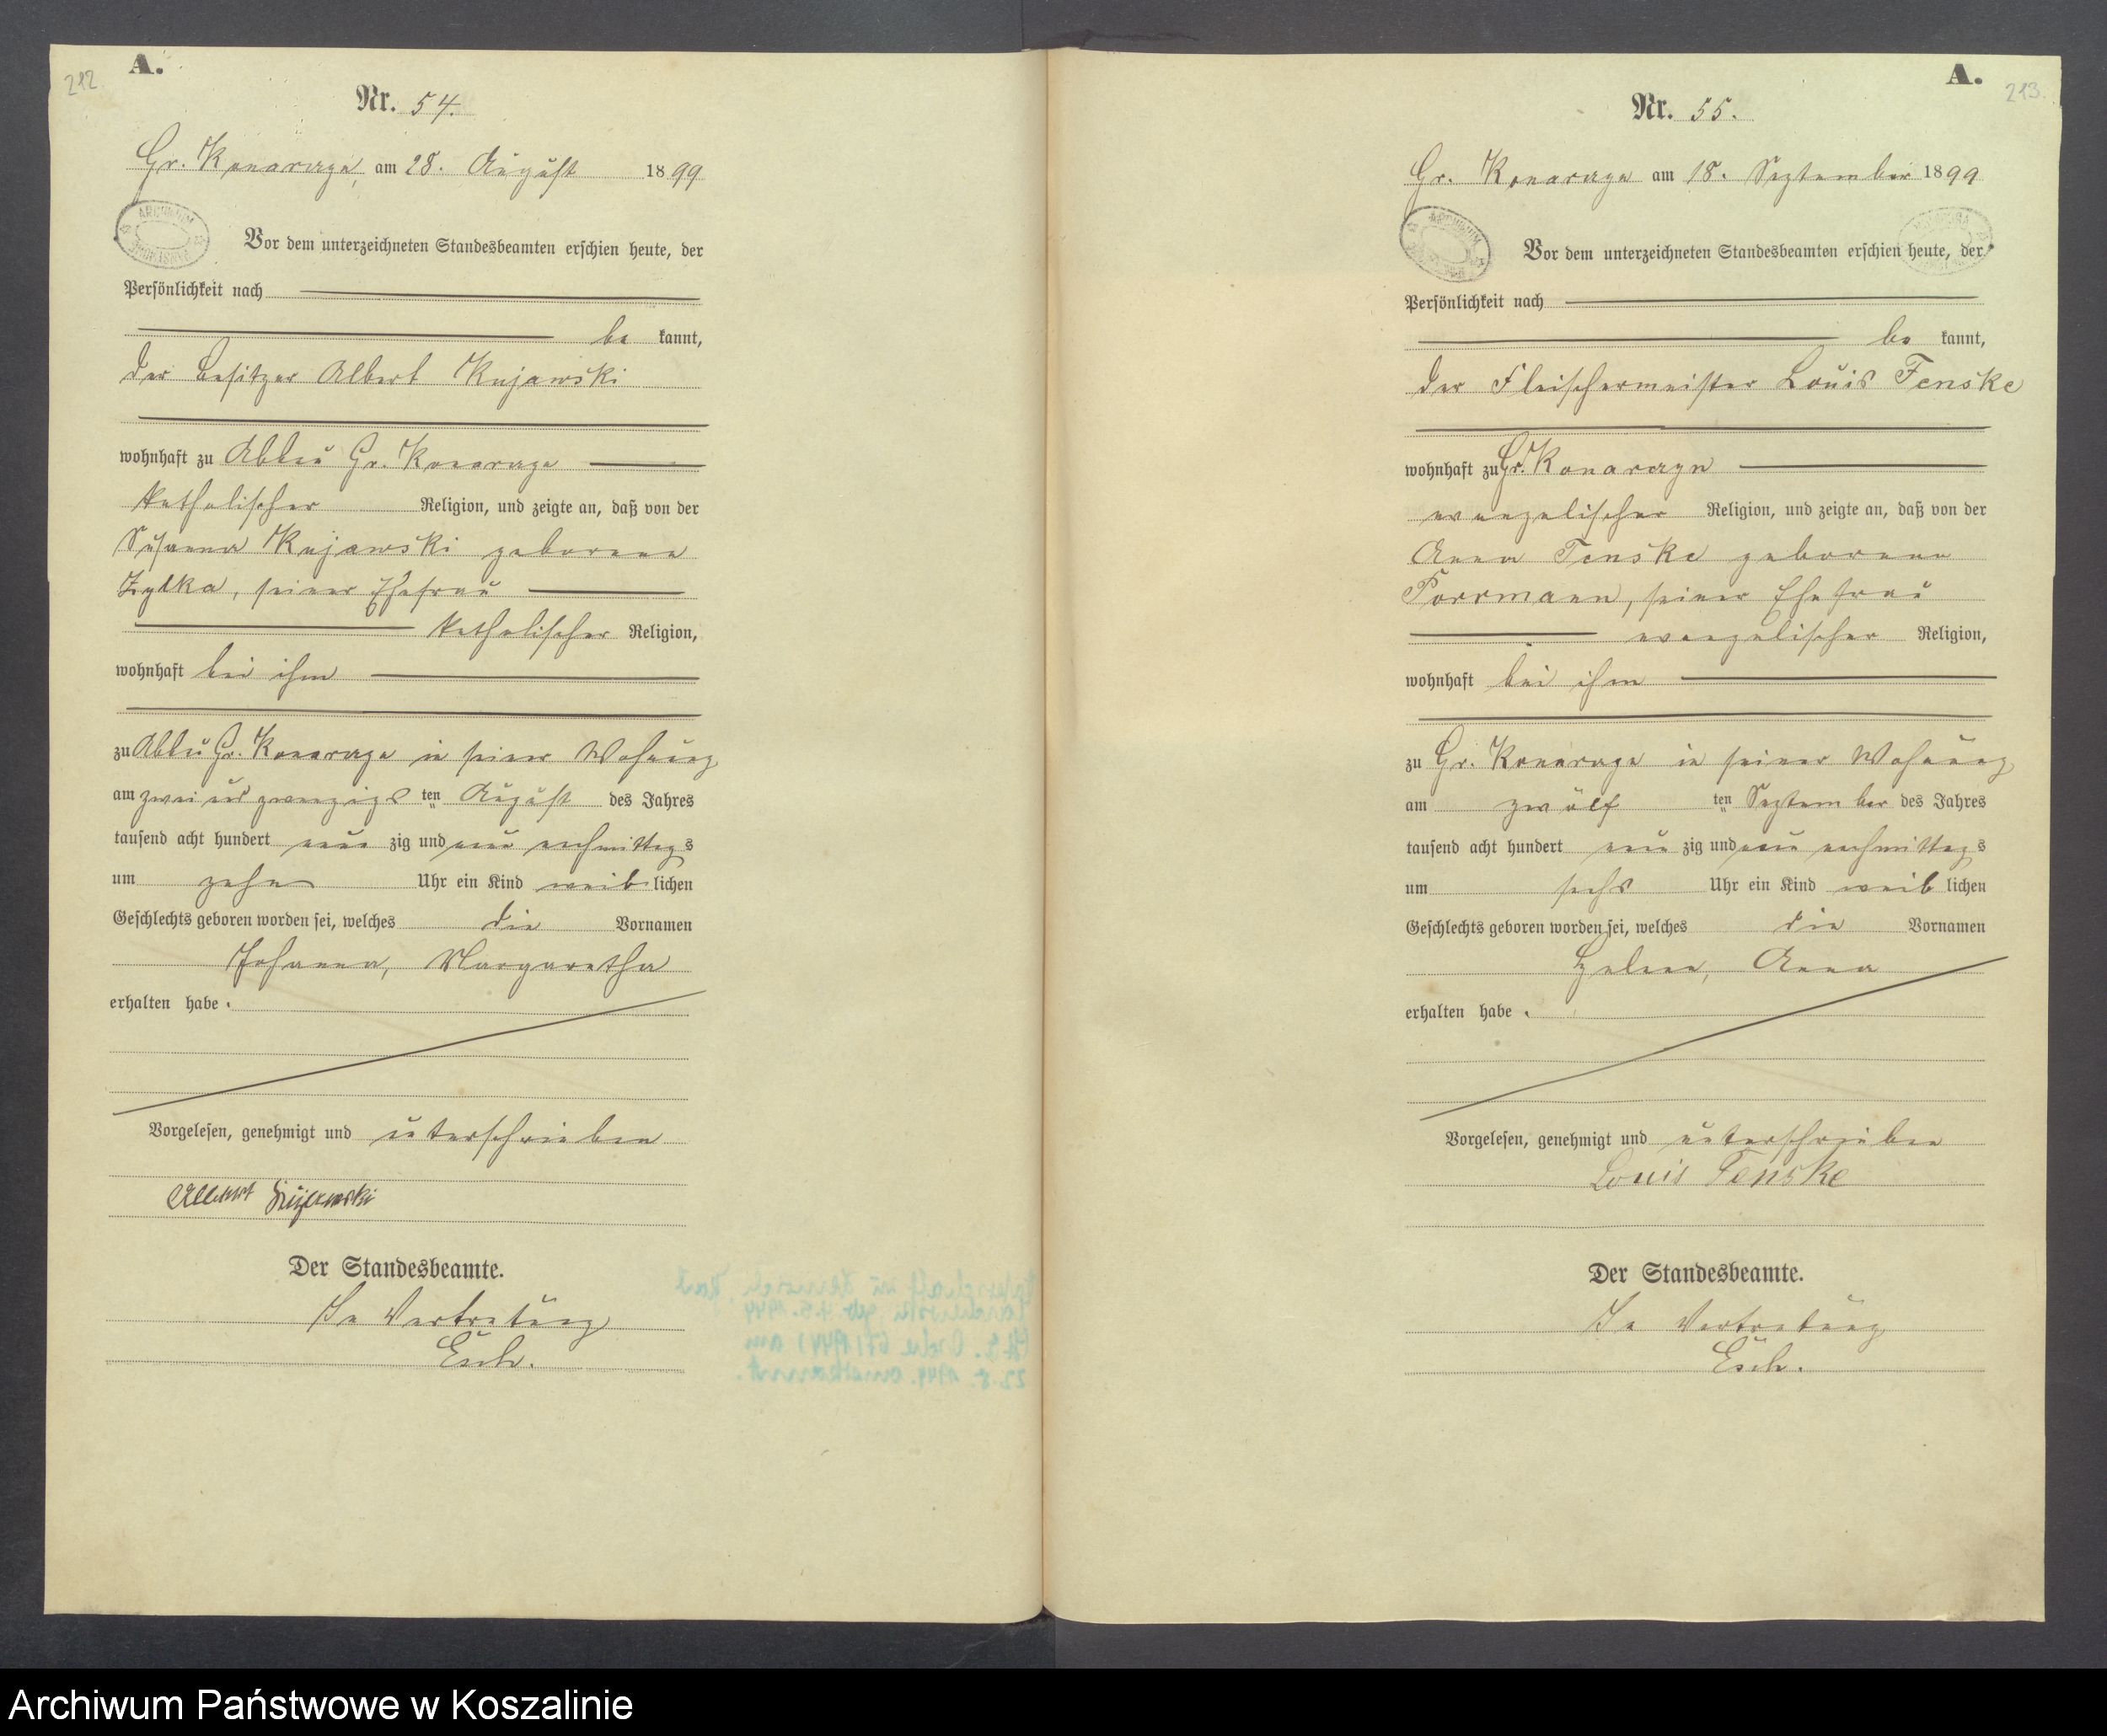 212.
A.
Nr. 54.
Gr. Konarczyn, am 28. August 1899
ARCHIWUM
Vor dem unterzeichneten Standesbeamten erschien heute, der
Persönlichkeit nach
be kannt,
der Besitzer Albert Kujawski
wohnhaft zu Abbau Gr. Konarczyn
katholischer Religion, und zeigte an, daß von der
Susanna Kujawski geborene
Zylka, seiner Ehefrau
katholischer Religion,
wohnhaft bei ihm
zu Abbau Gr. Konarczyn in seiner Wohnung
am zwei und zwanzigs ten August des Jahres
tausend acht hundert neun zig und neun nachmittags
um zehn Uhr ein Kind weib lichen
Geschlechts geboren worden sei, welches die Vornamen
Johanna, Margaretha
erhalten habe.
Vorgelesen, genehmigt und unterschrieben
Albert Kujawski
Der Standesbeamte.
In Vertretung
Esch.
A.
213.
Nr. 55.
Gr. Konarczyn am 18. September 1899
ARCHIWUM
Vor dem unterzeichneten Standesbeamten erschien heute, der
Persönlichkeit nach
be kannt,
der Fleischermeister Louis Fenske
wohnhaft zu Gr. Konarczyn
evangelischer Religion, und zeigte an, daß von der
Anna Fenske geborene
Porrmann, seiner Ehefrau
evangelischer Religion,
wohnhaft bei ihm
zu Gr. Konarczyn in seiner Wohnung
am zwölf ten September des Jahres
tausend acht hundert neun zig und neun nachmittags
um sechs Uhr ein Kind weib lichen
Geschlechts geboren worden sei, welches die Vornamen
Helene, Anna
erhalten habe.
Vorgelesen, genehmigt und unterschrieben
Louis Fenske
Der Standesbeamte.
In Vertretung
Esch.
Archiwum Państwowe w Koszalinie